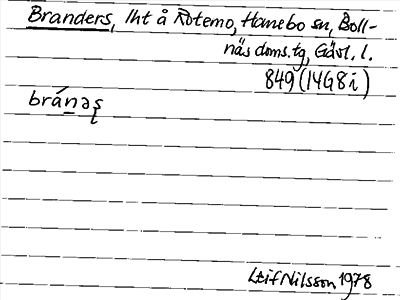 Branders, lht å Rotemo, Hanebo sn, Boll-
näs doms.tg, Gävl. l.
849 (14G8i)
bránəʂ
Leif Nilsson 1978